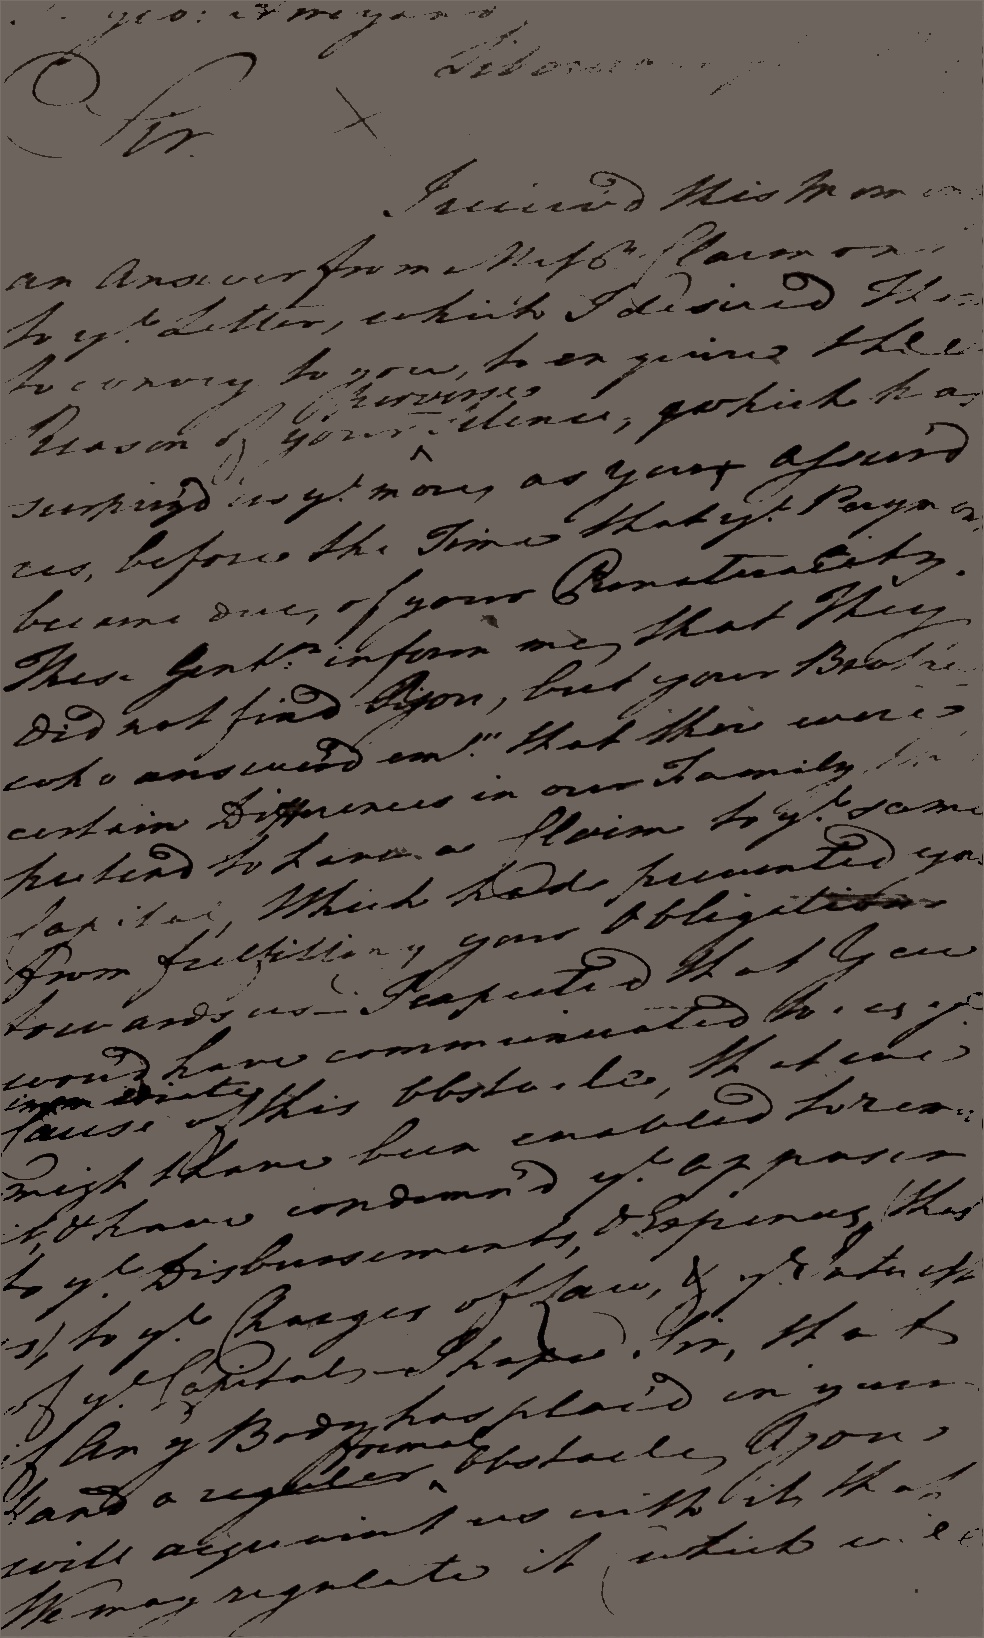 Sir.
I receiv'd this Mom
an Answer from Mess.rs Claimon
to y.r Letter, which I desired Them
to convey to you, to enquire the
Reason of your perverse silence, which has
surpriz'd us y.e more, as you assur'd
us, before the Time that y.e Paym
became due, of your Punctuality.
These Gent.n inform me, that They
did not find you, but your Brothe
who answer'd em "that there were
certain Differences in our Family
pretend to have a Claim to y.e same
Capital, Which had prevented you
from fulfilling your Obligations
towards us — I expected that You
wou'd have communicated to us y.e
immediate
Cause of this Obstacle, that we
might have been enabled to rem
it, & have condemn'd y.e opposer
to y.e Disbursements, & Expences, (that
is) to y.e Charges of Law, & y.e Interest
of y.e Capital — I hope Sir, that
if Any Body has plac'd in your
Hand a regular formal Obstacle, You
will acquaint us with it, that
We may regulate it (which will